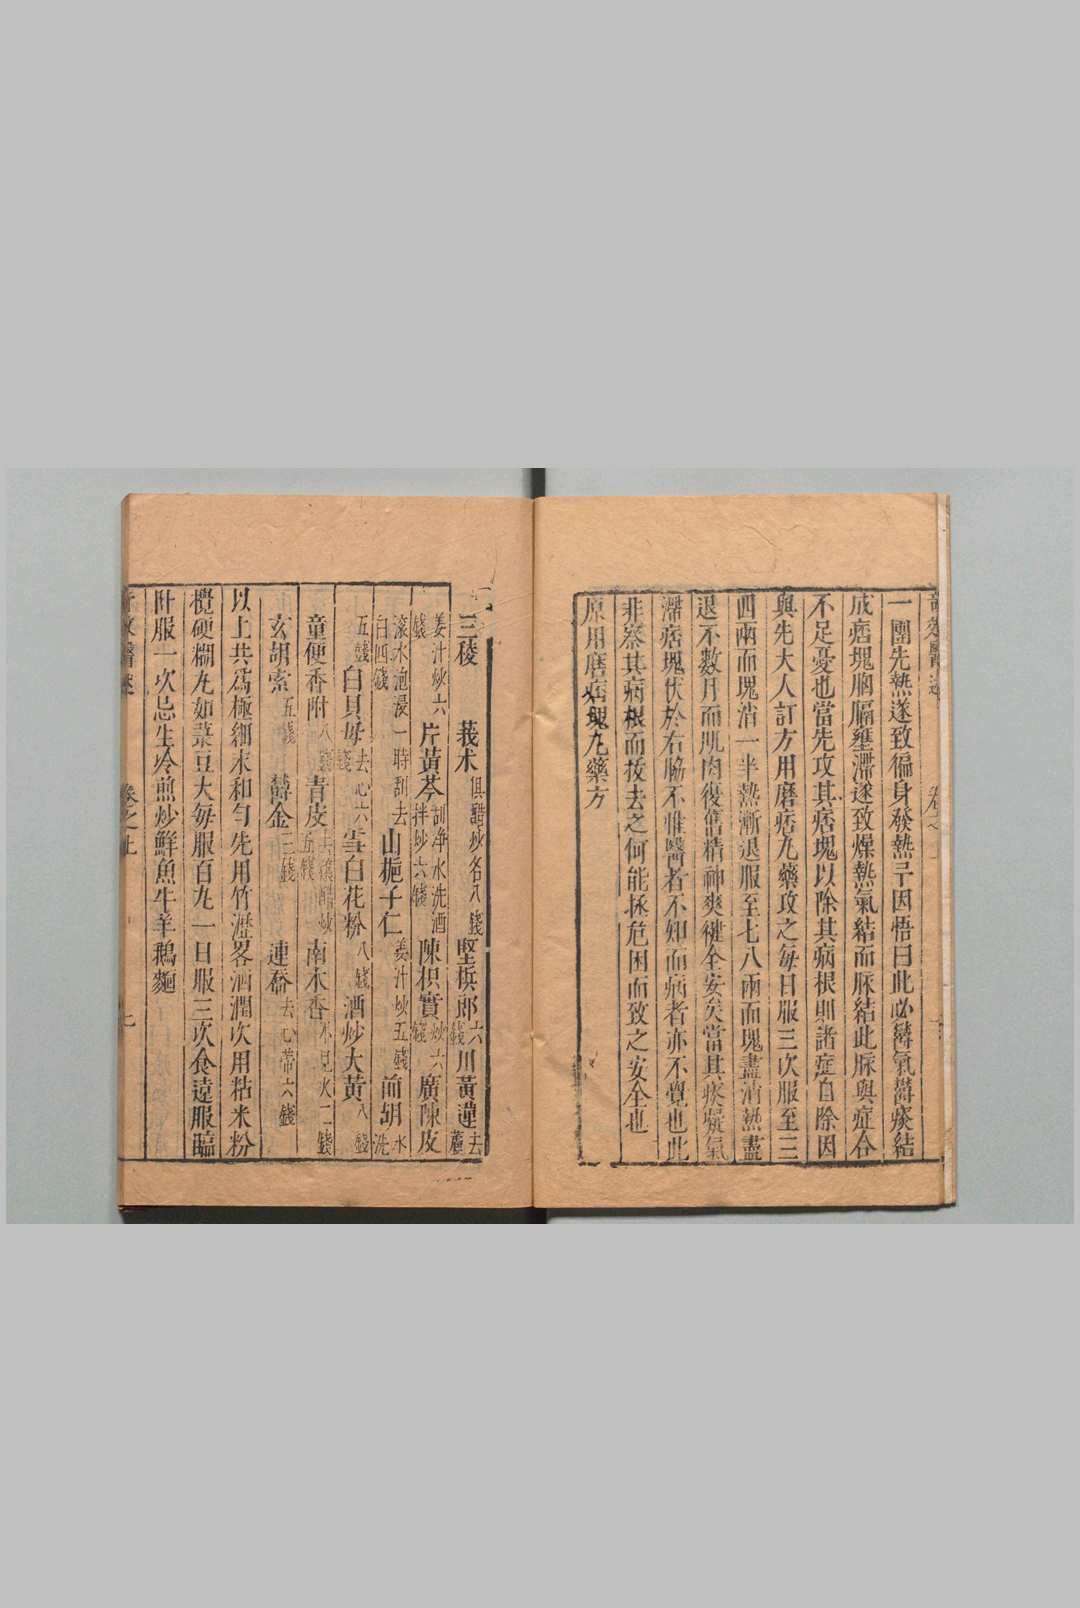 一團先熱遂致徧身發熱耳因悟曰此必鬱氣鬱痰結
成痞塊胸膈壅滯遂致燥熱氣結而脉結此脉與症合
不足憂也當先攻其痞塊以除其病根則諸症自除因
與先大人訂方用磨痞丸藥攻之每日服三次服至三
四兩而塊消一半熱漸退服至七八兩而塊盡消熱盡
退不數月而肌肉復舊精神爽健全安矣當其痰凝氣
滯痞塊伏於右脇不惟醫者不知而病者亦不覺也此
非察其病根而拔去之何能拯危困而致之安全也
原用磨痞塊丸藥方
三稜 莪术俱醋炒各八錢 堅梹郎六錢 川黃連去蘆
姜汁炒六錢 片黃芩刮净水洗酒拌炒六錢 陳枳實炒六錢 廣陳皮
滚水泡浸一時刮去白四錢 山梔子仁姜汁炒五錢 前胡水洗
五錢 白貝母去心六錢 雪白花粉八錢 酒炒大黃八錢
童便香附八錢 青皮去穰醋炒五錢 南木香不見火二錢
玄胡索五錢 欝金三錢 連喬去心蒂六錢
以上共爲極細末和勻先用竹瀝畧洒潤次用粘米粉
攪硬糊丸如菉豆大每服百丸一日服三次食遠服臨
卧服一次忌生冷煎炒鮮魚牛羊鵝麵
卷之上